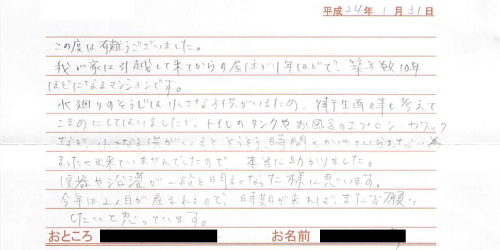 平成24年1月31日
この度は有難うございました。
我が家は引越して来てからの居住が1年ほどで、築年数10年
ほどになるマンションです。
水廻りのそうじは小さな子供がいるため、衛生面の事も考えて
こまめにしてはいましたが、トイレのタンクやお風呂のエプロン
など、小さな子供がいると 時間を
まったく出来ていませんでしたので、本当に助かりました。
浴槽が一段と明るくなった様に思います。
今年は2人目が産まれるので、時期が来ればまたお願い
したいと思っています。
おところ お名前